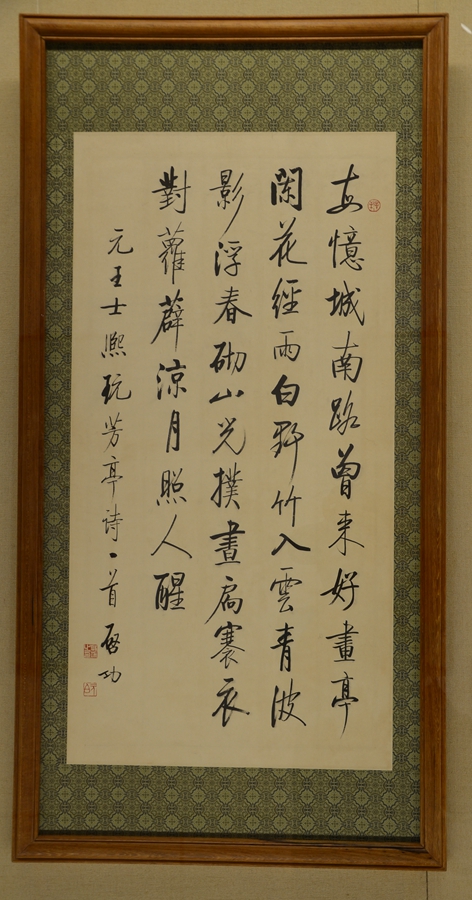 每憶城南路曾来好畫亭
闌花經雨白野竹入雲青波
影浮春砌山光撲畫扃褰衣
對蘿薜涼月照人醒
元王士熙玩芳亭詩一首 啟功